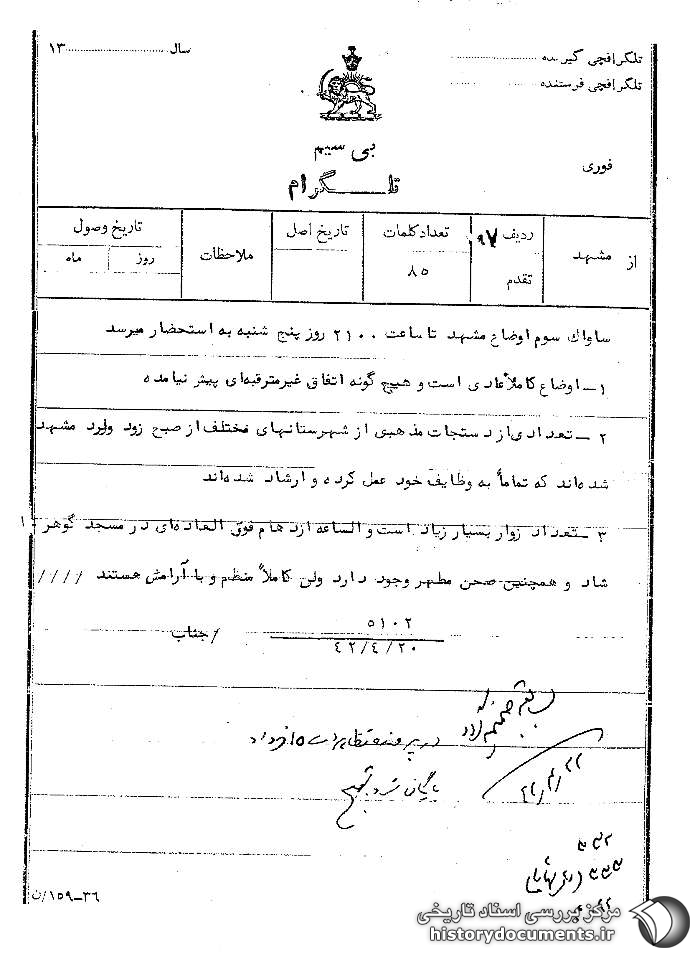 تلگرافچی گیرنده
سال ۱۳
تلگرافچی فرستنده
بی سیم
فوری
تلگرام
از مشهد
ردیف ۹۷
تقدم
تعداد کلمات
۸۵
تاریخ اصل
ملاحظات
تاریخ وصول
روز ماه
ساواک سوم اوضاع مشهد تا ساعت ۲۱۰۰ روز پنج شنبه به استحضار میرسد
۱- اوضاع کاملاً عادی است و هیچ گونه اتفاق غیرمترقبه‌ای پیش نیامده
۲- تعدادی از دستجات مذهبی از شهرستانهای مختلف از صبح زود وارد مشهد
شده‌اند که تماماً به وظایف خود عمل کرده و ارشاد شده‌اند
۳- تعداد زوار بسیار زیاد است و الساعه ازدهام فوق العاده‌ای در مسجد گوهر
شاد و همچنین صحن مطهر وجود دارد ولی کاملاً منظم و با آرامش هستند ////
۵۱۰۲
/جناب
۴۲/۴/۲۰
در پرونده تظاهرات ۱۵ خرداد
بایگانی شود
۳۶-۱۵۹/ن
مرکز بررسی اسناد تاریخی
historydocuments.ir